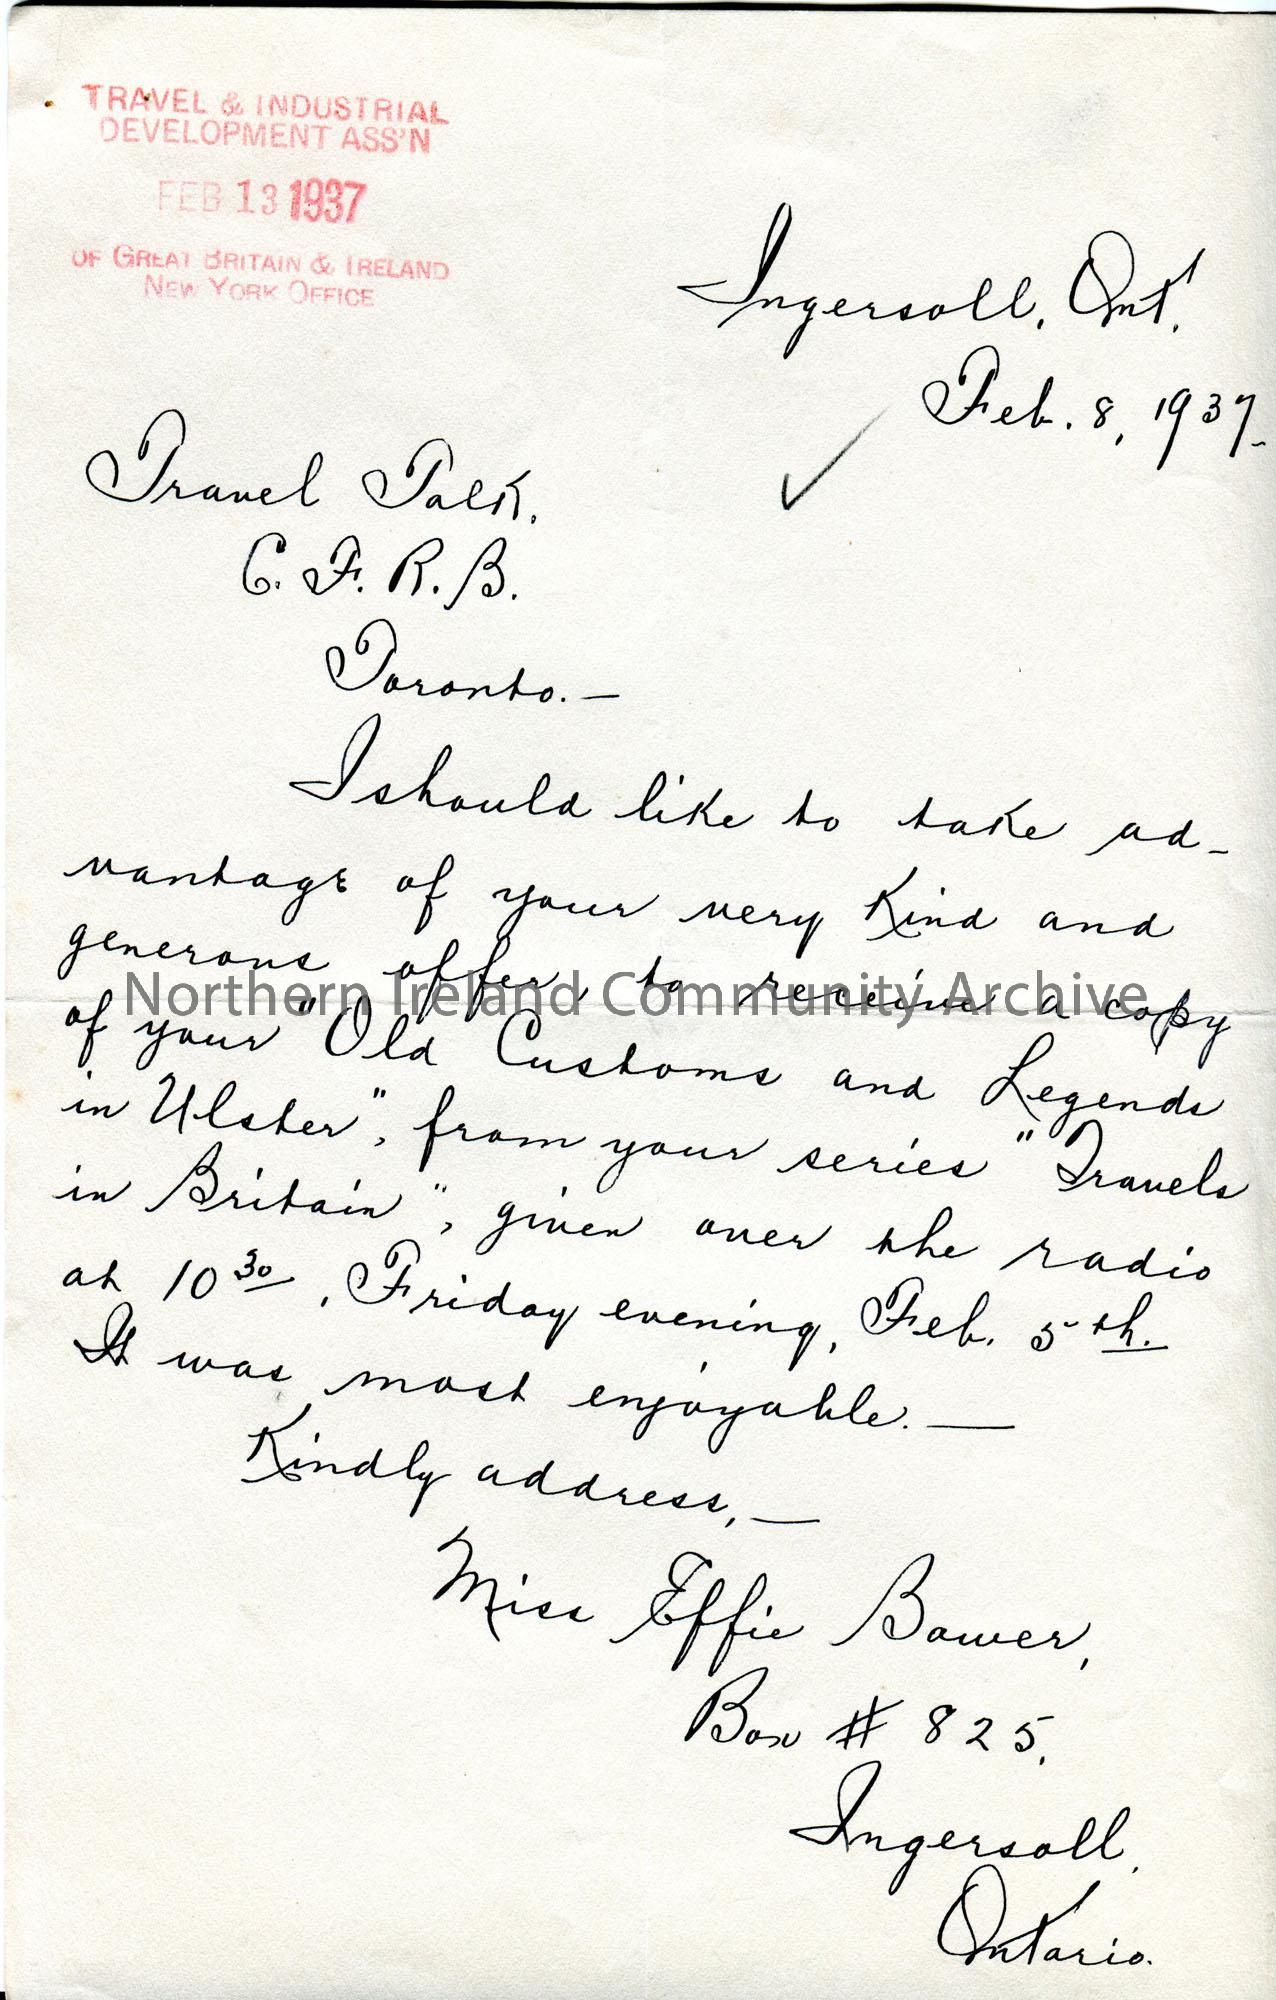 TRAVEL & INDUSTRIAL
DEVELOPMENT ASS'N
FEB 13 1937
OF GREAT BRITAIN & IRELAND
NEW YORK OFFICE
Ingersoll, Ont.
Feb. 8, 1937.
Travel Talk,
C. F. R. B.
Toronto. —
I should like to take ad-
vantage of your very kind and
generous offer, to receive a copy
Northern Ireland Community Archive
of your "Old Customs and Legends
in Ulster", from your series "Travels
in Britain", given over the radio
at 10 30, Friday evening, Feb. 5th.
It was most enjoyable. —
Kindly address, —
Miss Effie Bower,
Box # 825,
Ingersoll,
Ontario.